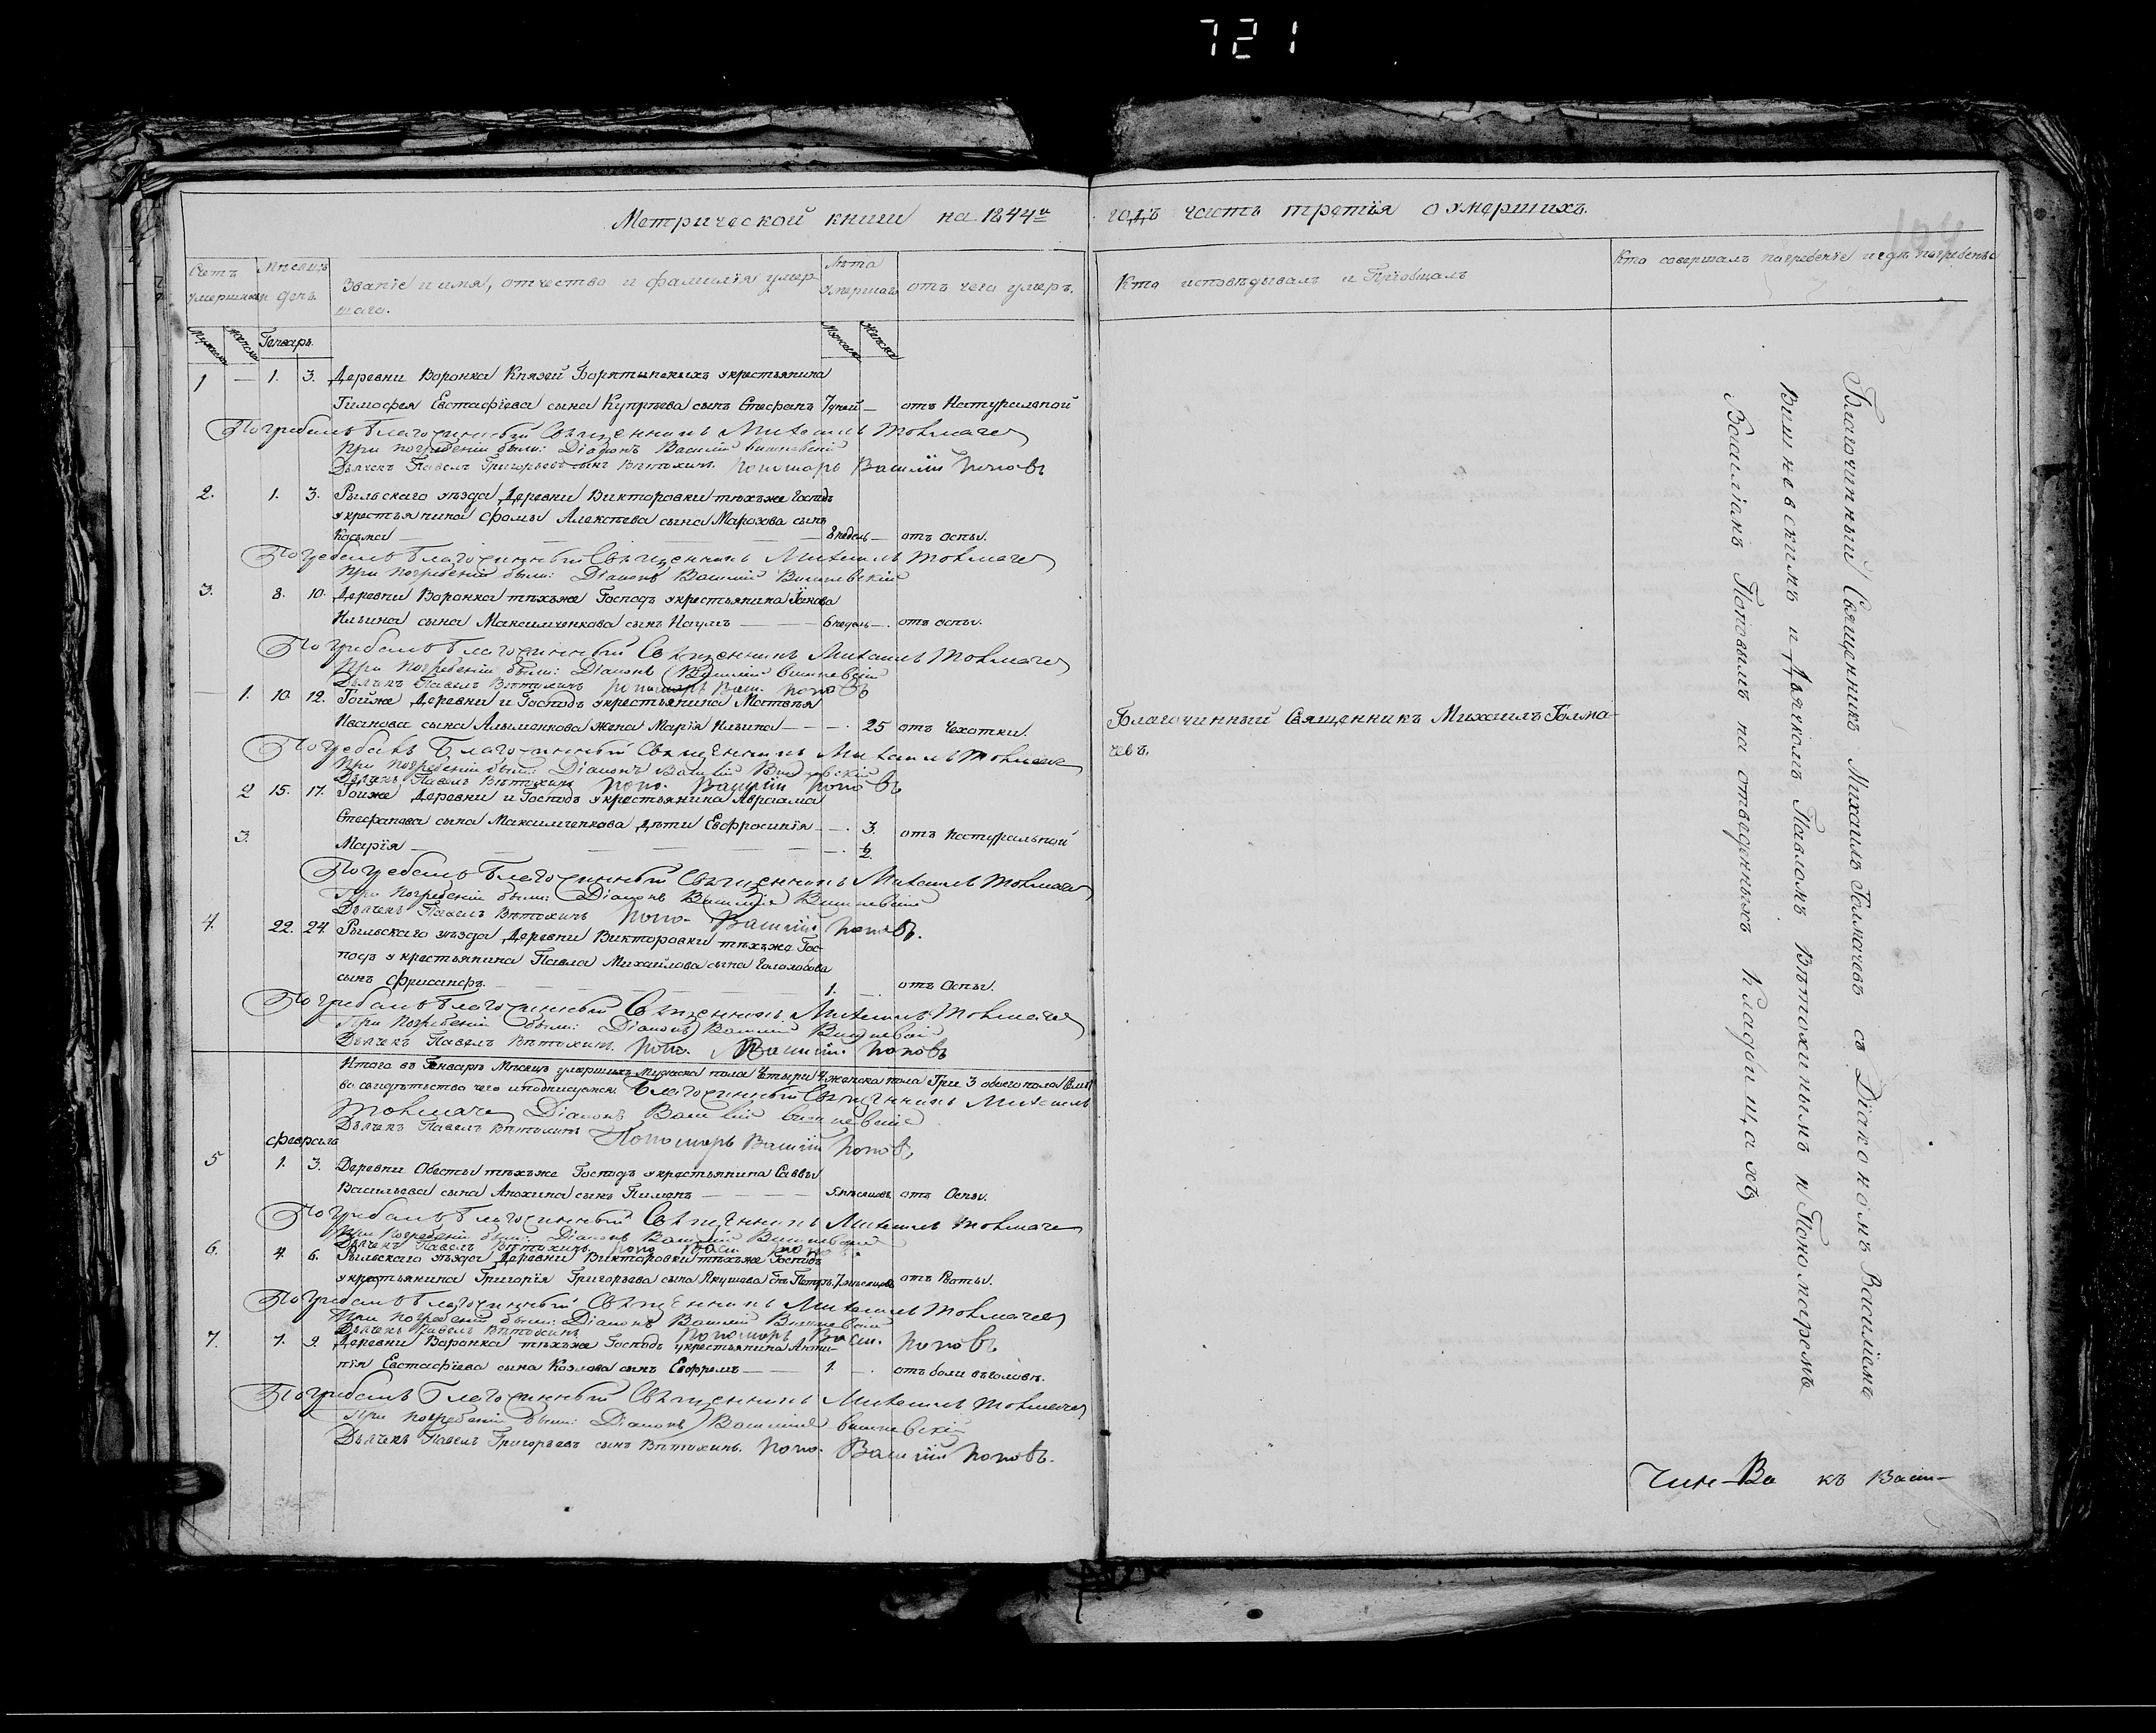 721
Метрической книги на 1844й годъ часть третія о умершихъ.
Счетъ умершихъ
Мѣсяцъ и день.
Званіе и имя, отчество и фамилія умершаго.
Лѣта умершаго
отъ чего умеръ.
Кто исповѣдывалъ и Пріобщалъ
Кто совершалъ погребеніе и гдѣ погребены
Мужеска
Женска
Генварь
Мужеска
Женска
1 — 1. 3. Деревни Воронка Князей Борятынскихъ у крестьянина
Тимофея Евстафіева сына Купрѣева сынъ Стефанъ 7 — отъ Натуральной
Погребалъ Благочинный Священникъ Михаилъ Толмачев
При погребеніи были: Діаконъ Василій Вишневскій
Дьячекъ Павелъ Григорьевъ сынъ Вѣтохинъ. Пономарь Василій Поповъ
2. 1. 3. Рыльскаго уѣзда Деревни Викторовки тѣхъ же Господъ
у крестьянина Фомы Алексѣева сына Марозова сынъ
Касьма — 8 недель — отъ оспы.
Погребалъ Благочинный Священникъ Михаилъ Толмачев
При погребеніи были: Діаконъ Василій Вишневскій
3. 8. 10. Деревни Воронка тѣхъ же Господъ у крестьянина Іакова
Ильина сына Максимченкова сынъ Наумъ — 6 недель — отъ оспы.
Погребалъ Благочинный Священникъ Михаилъ Толмачев
При погребеніи были: Діаконъ Василій Вишневскій
Дьячекъ Павелъ Вѣтохинъ Пономарь Васи. Поповъ
1. 10. 12. Тойже Деревни и Господъ у крестьянина Матвѣя
Иванова сына Алымонкова жена Марія Ильина — 25 отъ Чехотки.
Благочинный Священникъ Михаилъ Толма-
чевъ.
Погребалъ Благочинный Священникъ Михаилъ Толмачев
При погребеніи были: Діаконъ Василій Вишневскій
Дьячекъ Павелъ Вѣтохинъ Поно. Василій Поповъ
2 15. 17. Тойже Деревни и Господъ у крестьянина Авраама
Стефанова сына Максимченкова дѣти Евфросинія — 3. отъ Натуральной
3. Марія — ½.
Погребалъ Благочинный Священникъ Михаилъ Толмачев
При погребеніи были: Діаконъ Василій Вишневскій
Дьячекъ Павелъ Вѣтохинъ Поно. Василій Поповъ.
4. 22. 24. Рыльскаго уѣзда Деревни Викторовки тѣхъ же Гос-
подъ у крестьянина Павла Михайлова сына Голохобова
сынъ — 1. — отъ Оспы.
Погребалъ Благочинный Священникъ Михаилъ Толмачев
При погребеніи были: Діаконъ Василій Вишневскій
Дьячекъ Павелъ Вѣтохинъ. Поно. Василій Поповъ
Итого въ Генварѣ Мѣсяцѣ умершихъ мужеска пола Четыри 4 женска пола Три 3 обоего пола
во свидѣтельство чего и подписуемся. Благочинный Священникъ Михаилъ
Толмачев Діаконъ Василій Вишневскій
Дьячекъ Павелъ Вѣтохинъ Пономарь Василій Поповъ
февраля
5 1. 3. Деревни Обесты тѣхъ же Господъ у крестьянина Саввы
Васильева сына Анохина сынъ Пименъ — 5 мѣсяцовъ отъ Оспы.
Погребалъ Благочинный Священникъ Михаилъ Толмачев
При погребеніи были: Діаконъ Василій Вишневскій
Дьячекъ Павелъ Вѣтохинъ. Поно Васи. Поповъ.
6. 4. 6. Рыльскаго уѣзда Деревни Викторовки тѣхъ же Господъ
у крестьянина Григорія Григорьева сына Якушева снъ Петръ. 7 мѣсяцовъ отъ Рвоты.
Погребалъ Благочинный Священникъ Михаилъ Толмачев
При погребеніи были: Діаконъ Василій Вишневскій
Дьячекъ Павелъ Вѣтохинъ Пономарь Васи. Поповъ
7. 7. 9. Деревни Воронка тѣхъ же Господъ у крестьянина Анти-
пія Евстафіева сына Козлова сынъ Ефремъ — 1. — отъ боли въ головѣ.
Погребалъ Благочинный Священникъ Михаилъ Толмачев
При погребеніи были: Діаконъ Василій Вишневскій
Дьячекъ Павелъ Григорьевъ сынъ Вѣтохинъ. Поно. Василій Поповъ.
Благочинный Священникъ Михаилъ Голмачевъ съ Діакономъ Василіемъ
Вишневскимъ и Дьячкомъ Павломъ Вѣтохинымъ и Пономаремъ
Василіемъ Поповымъ на отведенныхъ Кладбищахъ
къ Васи-